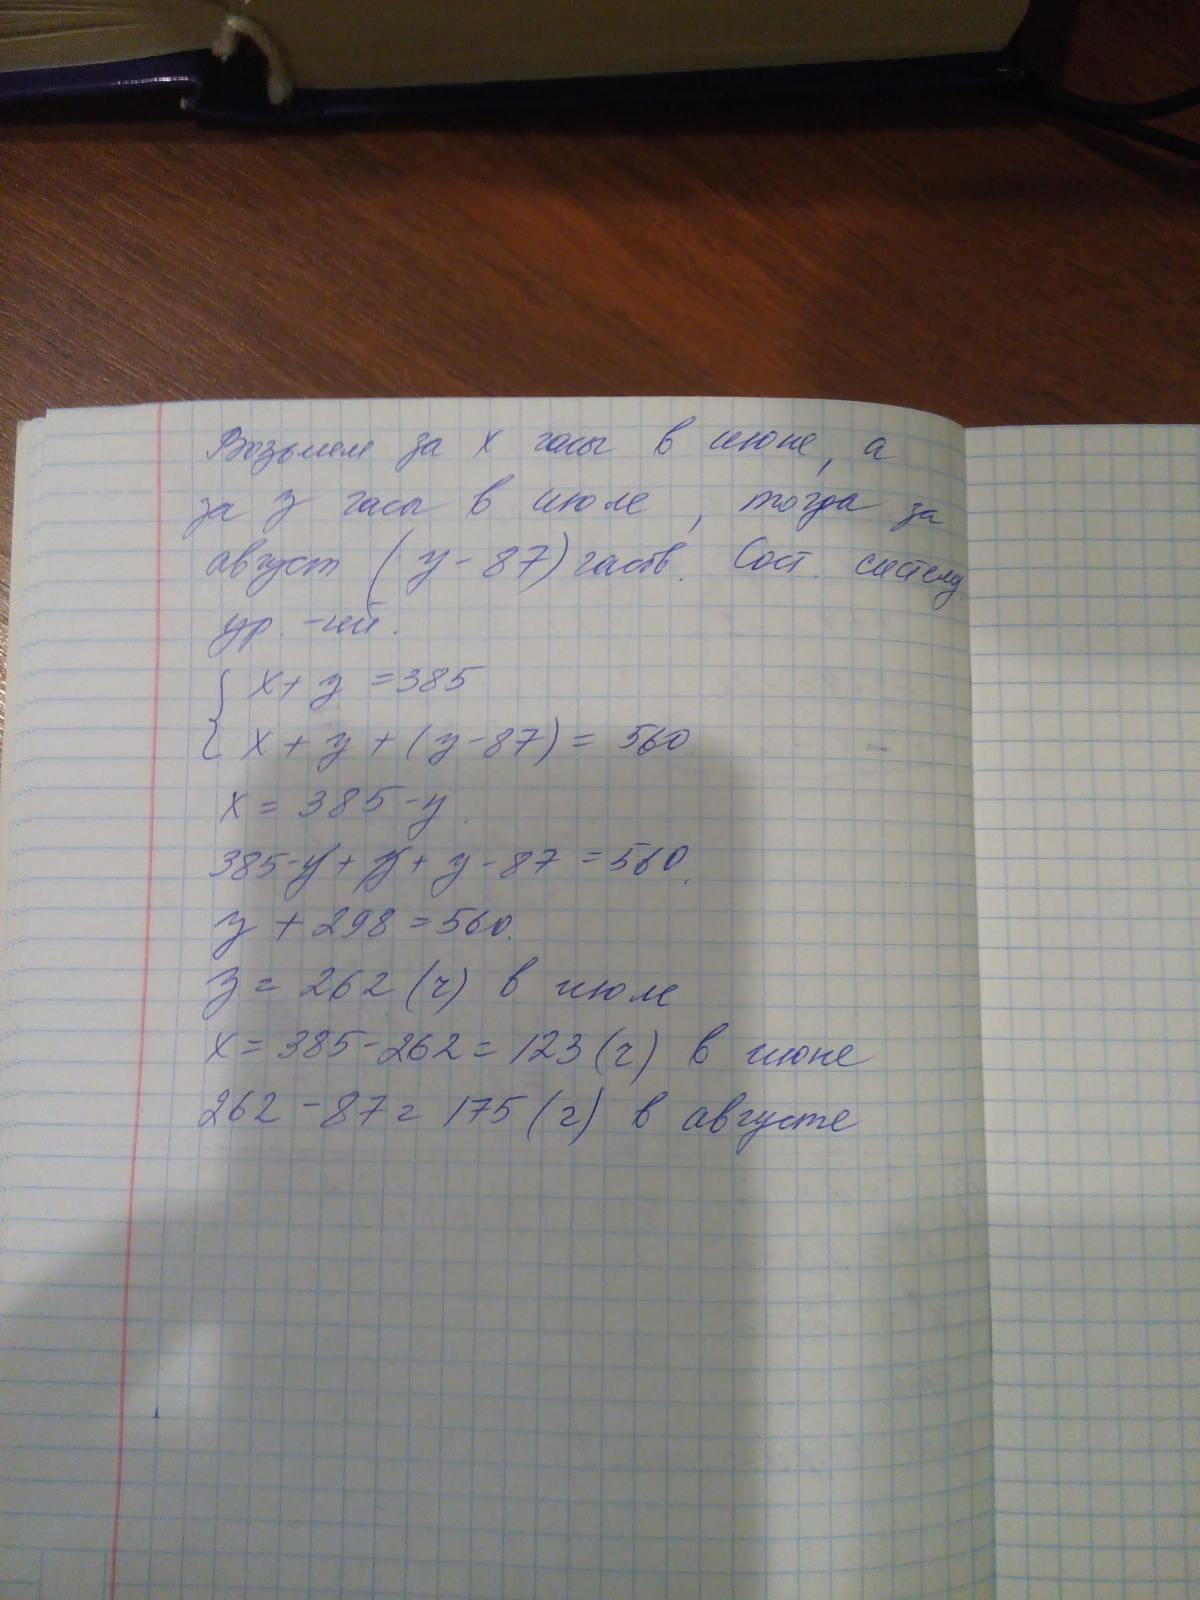 Возьмем за x часы в июне, а
за y часы в июле, тогда за
август (y-87) часов. Сост. систему
ур.-ий.
{ x+y=385
{ x+y+(y-87)=560
x=385-y.
385-y+y+y-87=560.
y+298=560.
y=262 (ч) в июле
x=385-262=123 (ч) в июне
262-87=175 (ч) в августе